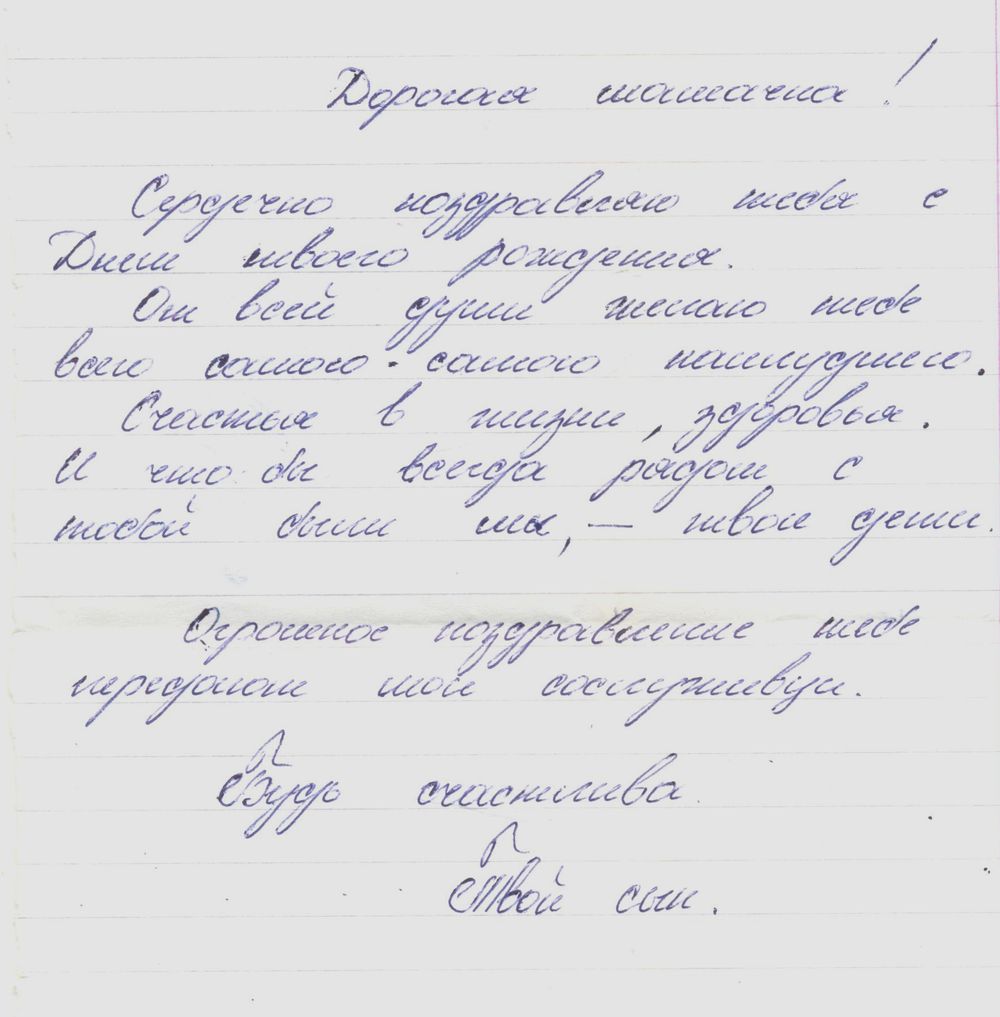 Дорогая мамочка!
Сердечно поздравляю тебя с
Днем твоего рождения.
От всей души желаю тебе
всего самого-самого наилучшего.
Счастья в жизни, здоровья.
И что бы всегда рядом с
тобой были мы, – твои дети.
Огромное поздравление тебе
передают мои сослуживцы.
Будь счастлива
Твой сын.